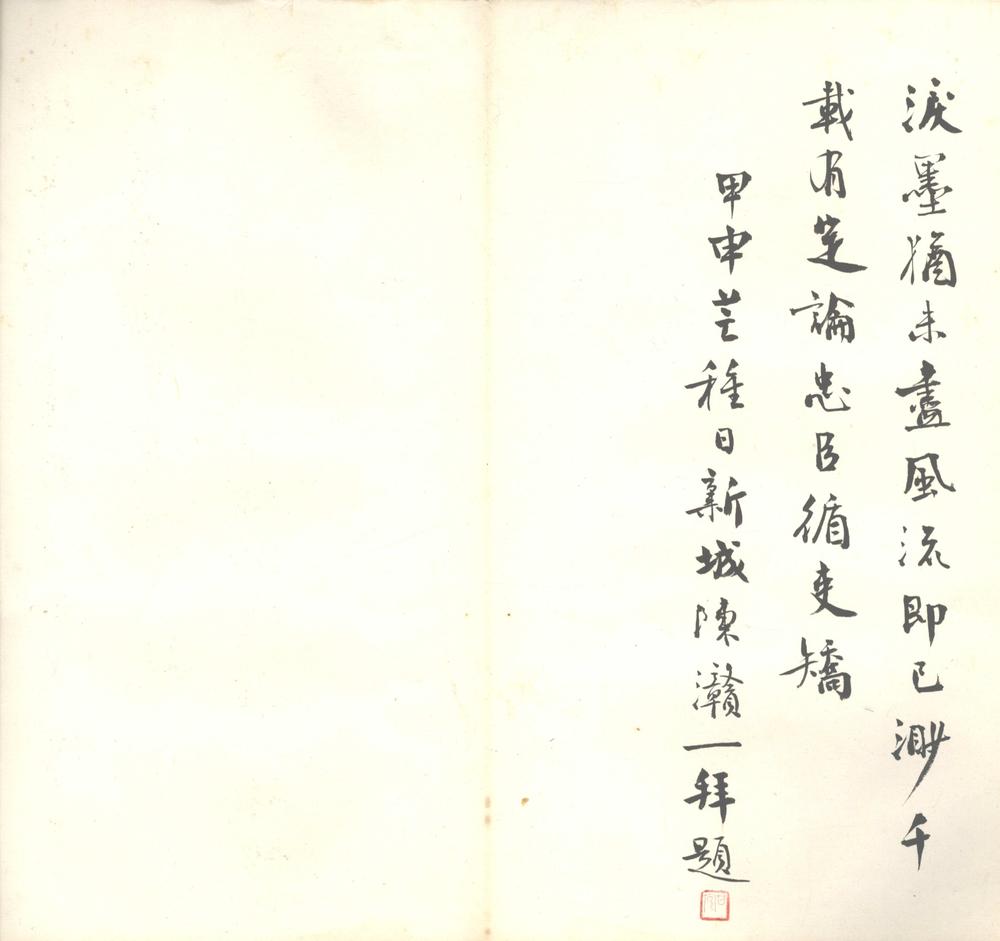 淚墨猶未盡風流即已渺千
載有定論忠臣循吏矯
甲申芒種日新城陳灨一拜題